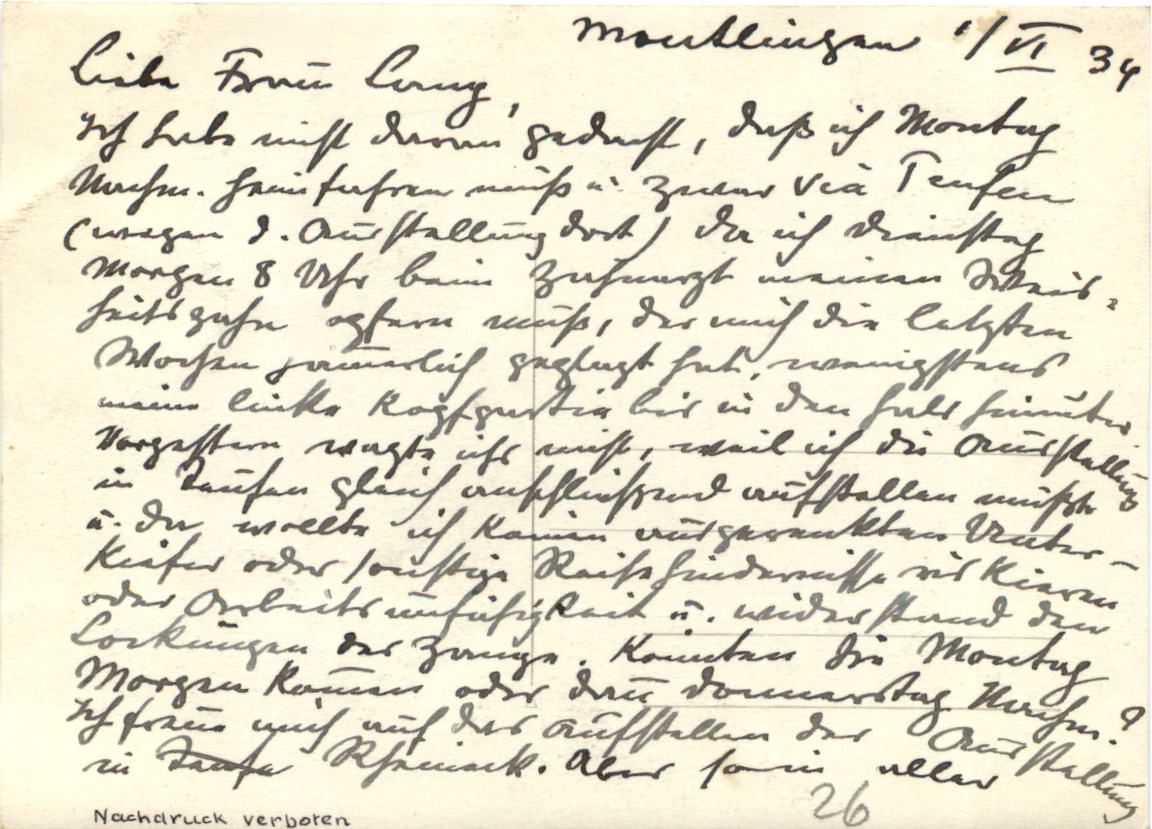 Montlingen 1/VI 34
Liebe Frau Lany,
Ich habe nicht daran gedacht, daß ich Montag
Nachm. heimfahren muß u. zwar via Teufen
(wegen d. Ausstellung dort) da ich Dienstag
Morgen 8 Uhr beim Zahnarzt meinen Weis-
heitszahn opfern muß, der mich die letzten
Wochen jämmerlich geplagt hat, wenigstens
meine linke Kopfpartie bis in den Hals hinunter.
Vorgestern wagte ichs nicht, weil ich die Ausstellung
in Teufen gleich anschließend aufstellen mußte
u. da wollte ich keinen ausgerenkten Unter-
kiefer oder sonstige Reisehindernisse riskieren
oder Arbeitsunfähigkeit u. widerstand den
Lockungen der Zange. Könnten Sie Montag
Morgen kommen oder dann Donnerstag Nachm.?
Ich freue mich auf das Aufstellen der Ausstellung
in Teufe Rheineck. Aber so in aller
26
Nachdruck verboten